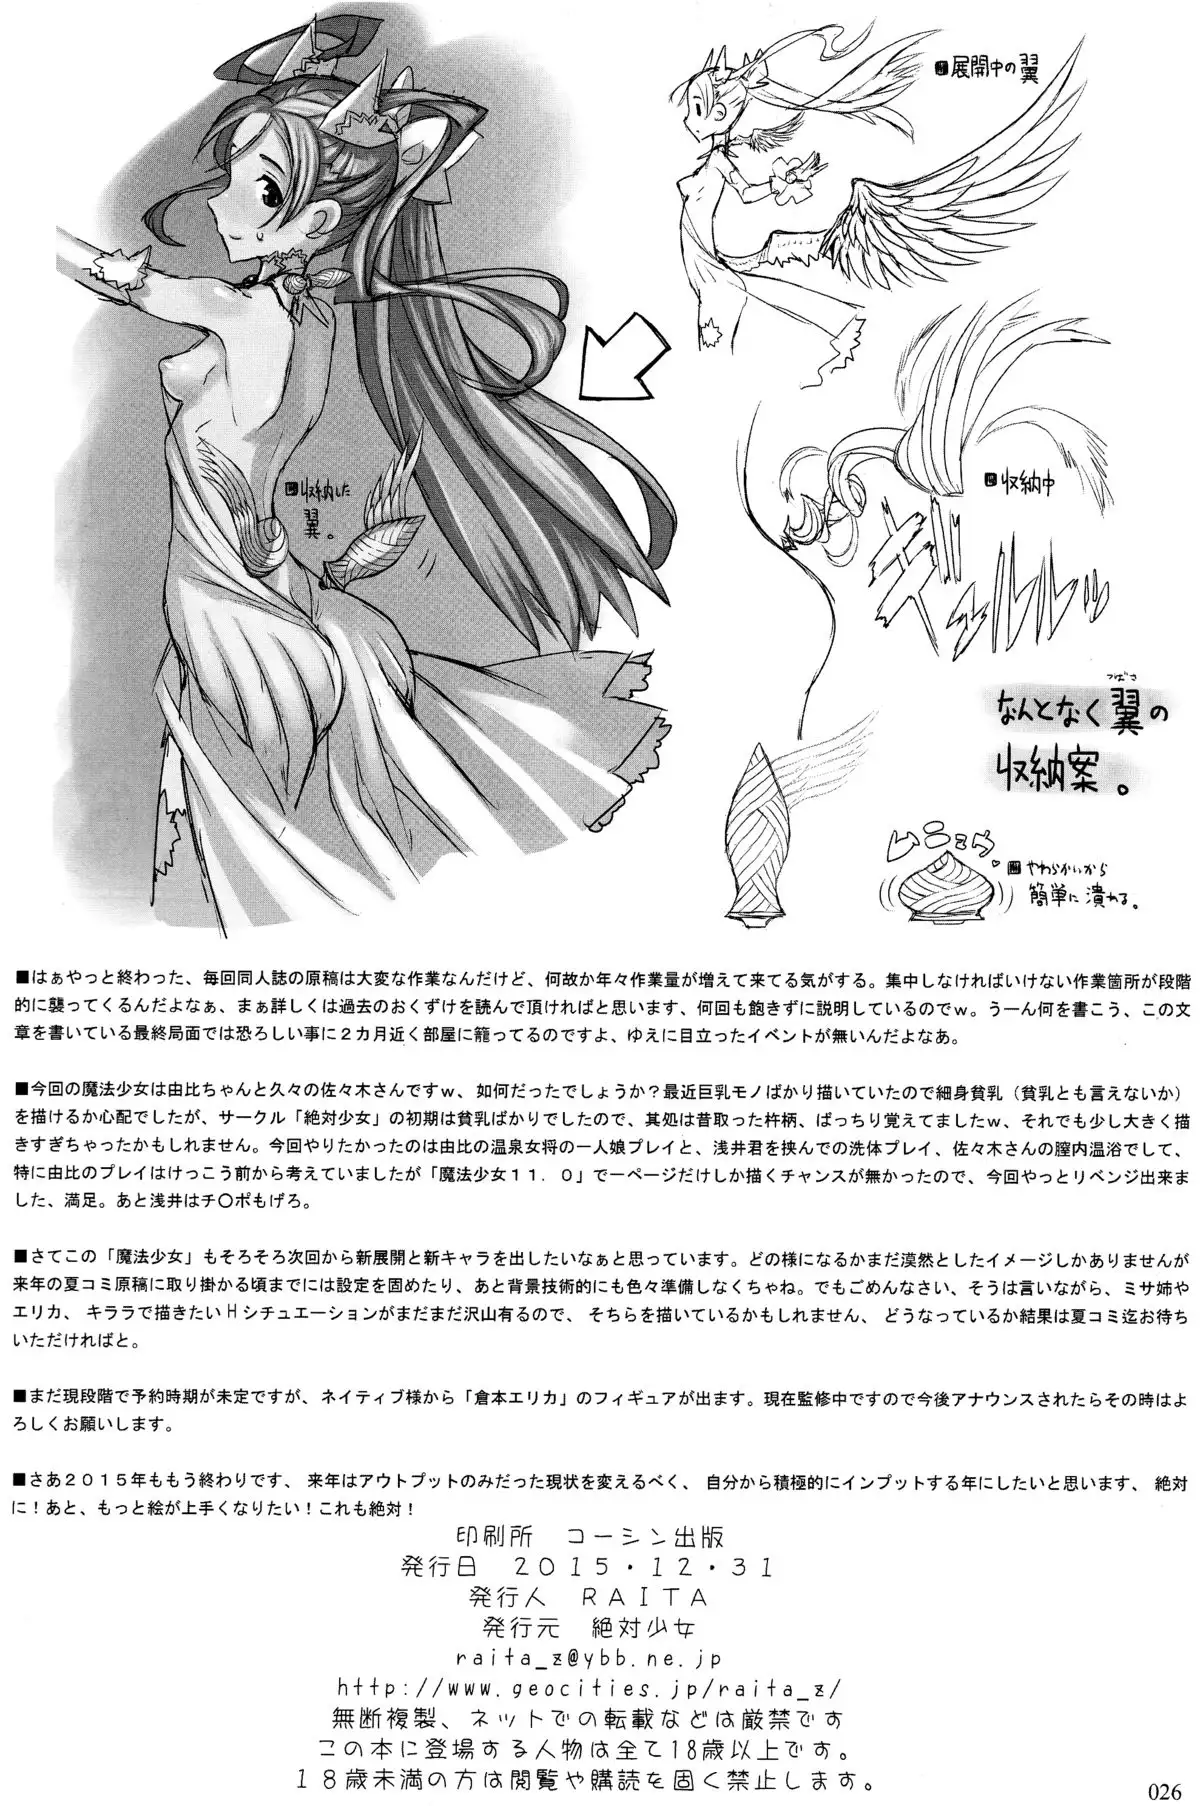 展開中の翼
収納した
翼。
収納中
ズ
ズルルルッ
つばさ
なんとなく翼の
収納案。
ムニュウ
やわらかいから
簡単に潰れる。
■はぁやっと終わった、毎回同人誌の原稿は大変な作業なんだけど、何故か年々作業量が増えて来てる気がする。集中しなければいけない作業箇所が段階
的に襲ってくるんだよなぁ、まぁ詳しくは過去のおくずけを読んで頂ければと思います、何回も飽きずに説明しているのでｗ。うーん何を書こう、この文
章を書いている最終局面では恐ろしい事に２カ月近く部屋に籠ってるのですよ、ゆえに目立ったイベントが無いんだよなあ。
■今回の魔法少女は由比ちゃんと久々の佐々木さんですｗ、如何だったでしょうか？最近巨乳モノばかり描いていたので細身貧乳（貧乳とも言えないか）
を描けるか心配でしたが、サークル「絶対少女」の初期は貧乳ばかりでしたので、其処は昔取った杵柄、ばっちり覚えてましたｗ、それでも少し大きく描
きすぎちゃったかもしれません。今回やりたかったのは由比の温泉女将の一人娘プレイと、浅井君を挟んでの洗体プレイ、佐々木さんの膣内温浴でして、
特に由比のプレイはけっこう前から考えていましたが「魔法少女１１．０」で一ページだけしか描くチャンスが無かったので、今回やっとリベンジ出来ま
した、満足。あと浅井はチ〇ポもげろ。
■さてこの「魔法少女」もそろそろ次回から新展開と新キャラを出したいなぁと思っています。どの様になるかまだ漠然としたイメージしかありませんが
来年の夏コミ原稿に取り掛かる頃までには設定を固めたり、あと背景技術的にも色々準備しなくちゃね。でもごめんなさい、そうは言いながら、ミサ姉や
エリカ、キララで描きたいＨシチュエーションがまだまだ沢山有るので、そちらを描いているかもしれません、どうなっているか結果は夏コミ迄お待ち
いただければと。
■まだ現段階で予約時期が未定ですが、ネイティブ様から「倉本エリカ」のフィギュアが出ます。現在監修中ですので今後アナウンスされたらその時はよ
ろしくお願いします。
■さあ２０１５年ももう終わりです、来年はアウトプットのみだった現状を変えるべく、自分から積極的にインプットする年にしたいと思います、絶対
に！あと、もっと絵が上手くなりたい！これも絶対！
印刷所　コーシン出版
発行日　２０１５・１２・３１
発行人　ＲＡＩＴＡ
発行元　絶対少女
raita_z@ybb.ne.jp
http://www.geocities.jp/raita_z/
無断複製、ネットでの転載などは厳禁です
この本に登場する人物は全て18歳以上です。
１８歳未満の方は閲覧や購読を固く禁止します。
026